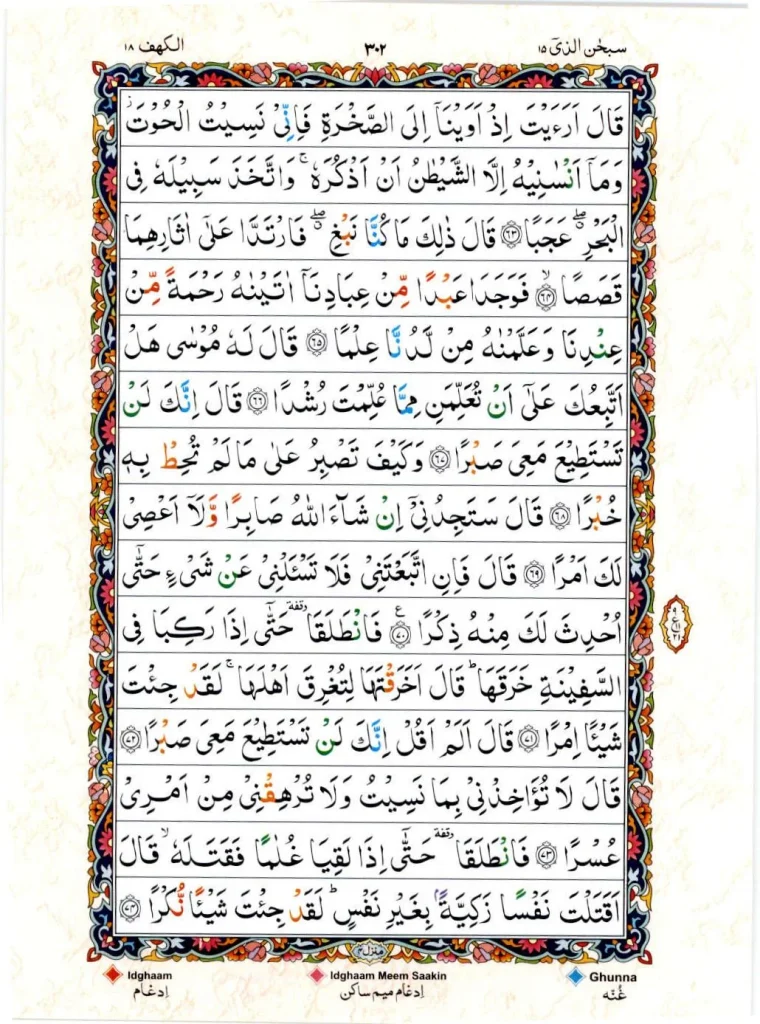 سبحٰن الذیٓ ۱۵
۳۰۲
الکهف ۱۸
قَالَ اَرَءَيْتَ اِذْ اَوَيْنَاۤ اِلَى الصَّخْرَةِ فَاِنِّىْ نَسِيْتُ الْحُوْتَ ؗ
وَمَاۤ اَنْسٰنِيْهُ اِلَّا الشَّيْطٰنُ اَنْ اَذْكُرَهٗ ۚ وَاتَّخَذَ سَبِيْلَهٗ فِى
الْبَحْرِ ۖۗ عَجَبًا ۝۶۳ قَالَ ذٰلِكَ مَا كُنَّا نَبْغِ ۖۗ فَارْتَدَّا عَلٰٓى اٰثَارِهِمَا
قَصَصًا ۙ۝۶۴ فَوَجَدَا عَبْدًا مِّنْ عِبَادِنَاۤ اٰتَيْنٰهُ رَحْمَةً مِّنْ
عِنْدِنَا وَعَلَّمْنٰهُ مِنْ لَّدُنَّا عِلْمًا ۝۶۵ قَالَ لَهٗ مُوْسٰى هَلْ
اَتَّبِعُكَ عَلٰٓى اَنْ تُعَلِّمَنِ مِمَّا عُلِّمْتَ رُشْدًا ۝۶۶ قَالَ اِنَّكَ لَنْ
تَسْتَطِيْعَ مَعِىَ صَبْرًا ۝۶۷ وَكَيْفَ تَصْبِرُ عَلٰى مَا لَمْ تُحِطْ بِهٖ
خُبْرًا ۝۶۸ قَالَ سَتَجِدُنِىْۤ اِنْ شَآءَ اللّٰهُ صَابِرًا وَّلَاۤ اَعْصِىْ
لَكَ اَمْرًا ۝۶۹ قَالَ فَاِنِ اتَّبَعْتَنِىْ فَلَا تَسْـَٔلْنِىْ عَنْ شَىْءٍ حَتّٰٓى
اُحْدِثَ لَكَ مِنْهُ ذِكْرًا ۝۷۰ ع فَانْطَلَقَا وقفة حَتّٰٓى اِذَا رَكِبَا فِى
السَّفِيْنَةِ خَرَقَهَا ؕ قَالَ اَخَرَقْتَهَا لِتُغْرِقَ اَهْلَهَا ۚ لَقَدْ جِئْتَ
شَيْئًا اِمْرًا ۝۷۱ قَالَ اَلَمْ اَقُلْ اِنَّكَ لَنْ تَسْتَطِيْعَ مَعِىَ صَبْرًا ۝۷۲
قَالَ لَا تُؤَاخِذْنِىْ بِمَا نَسِيْتُ وَلَا تُرْهِقْنِىْ مِنْ اَمْرِىْ
عُسْرًا ۝۷۳ فَانْطَلَقَا وقفة حَتّٰٓى اِذَا لَقِيَا غُلٰمًا فَقَتَلَهٗ ۙ قَالَ
اَقَتَلْتَ نَفْسًا زَكِيَّةًۢ بِغَيْرِ نَفْسٍ ؕ لَقَدْ جِئْتَ شَيْئًا نُّكْرًا ۝۷۴
منزل ۴
Idghaam
ادغام
Idghaam Meem Saakin
ادغام میم ساکن
Ghunna
غُنّه